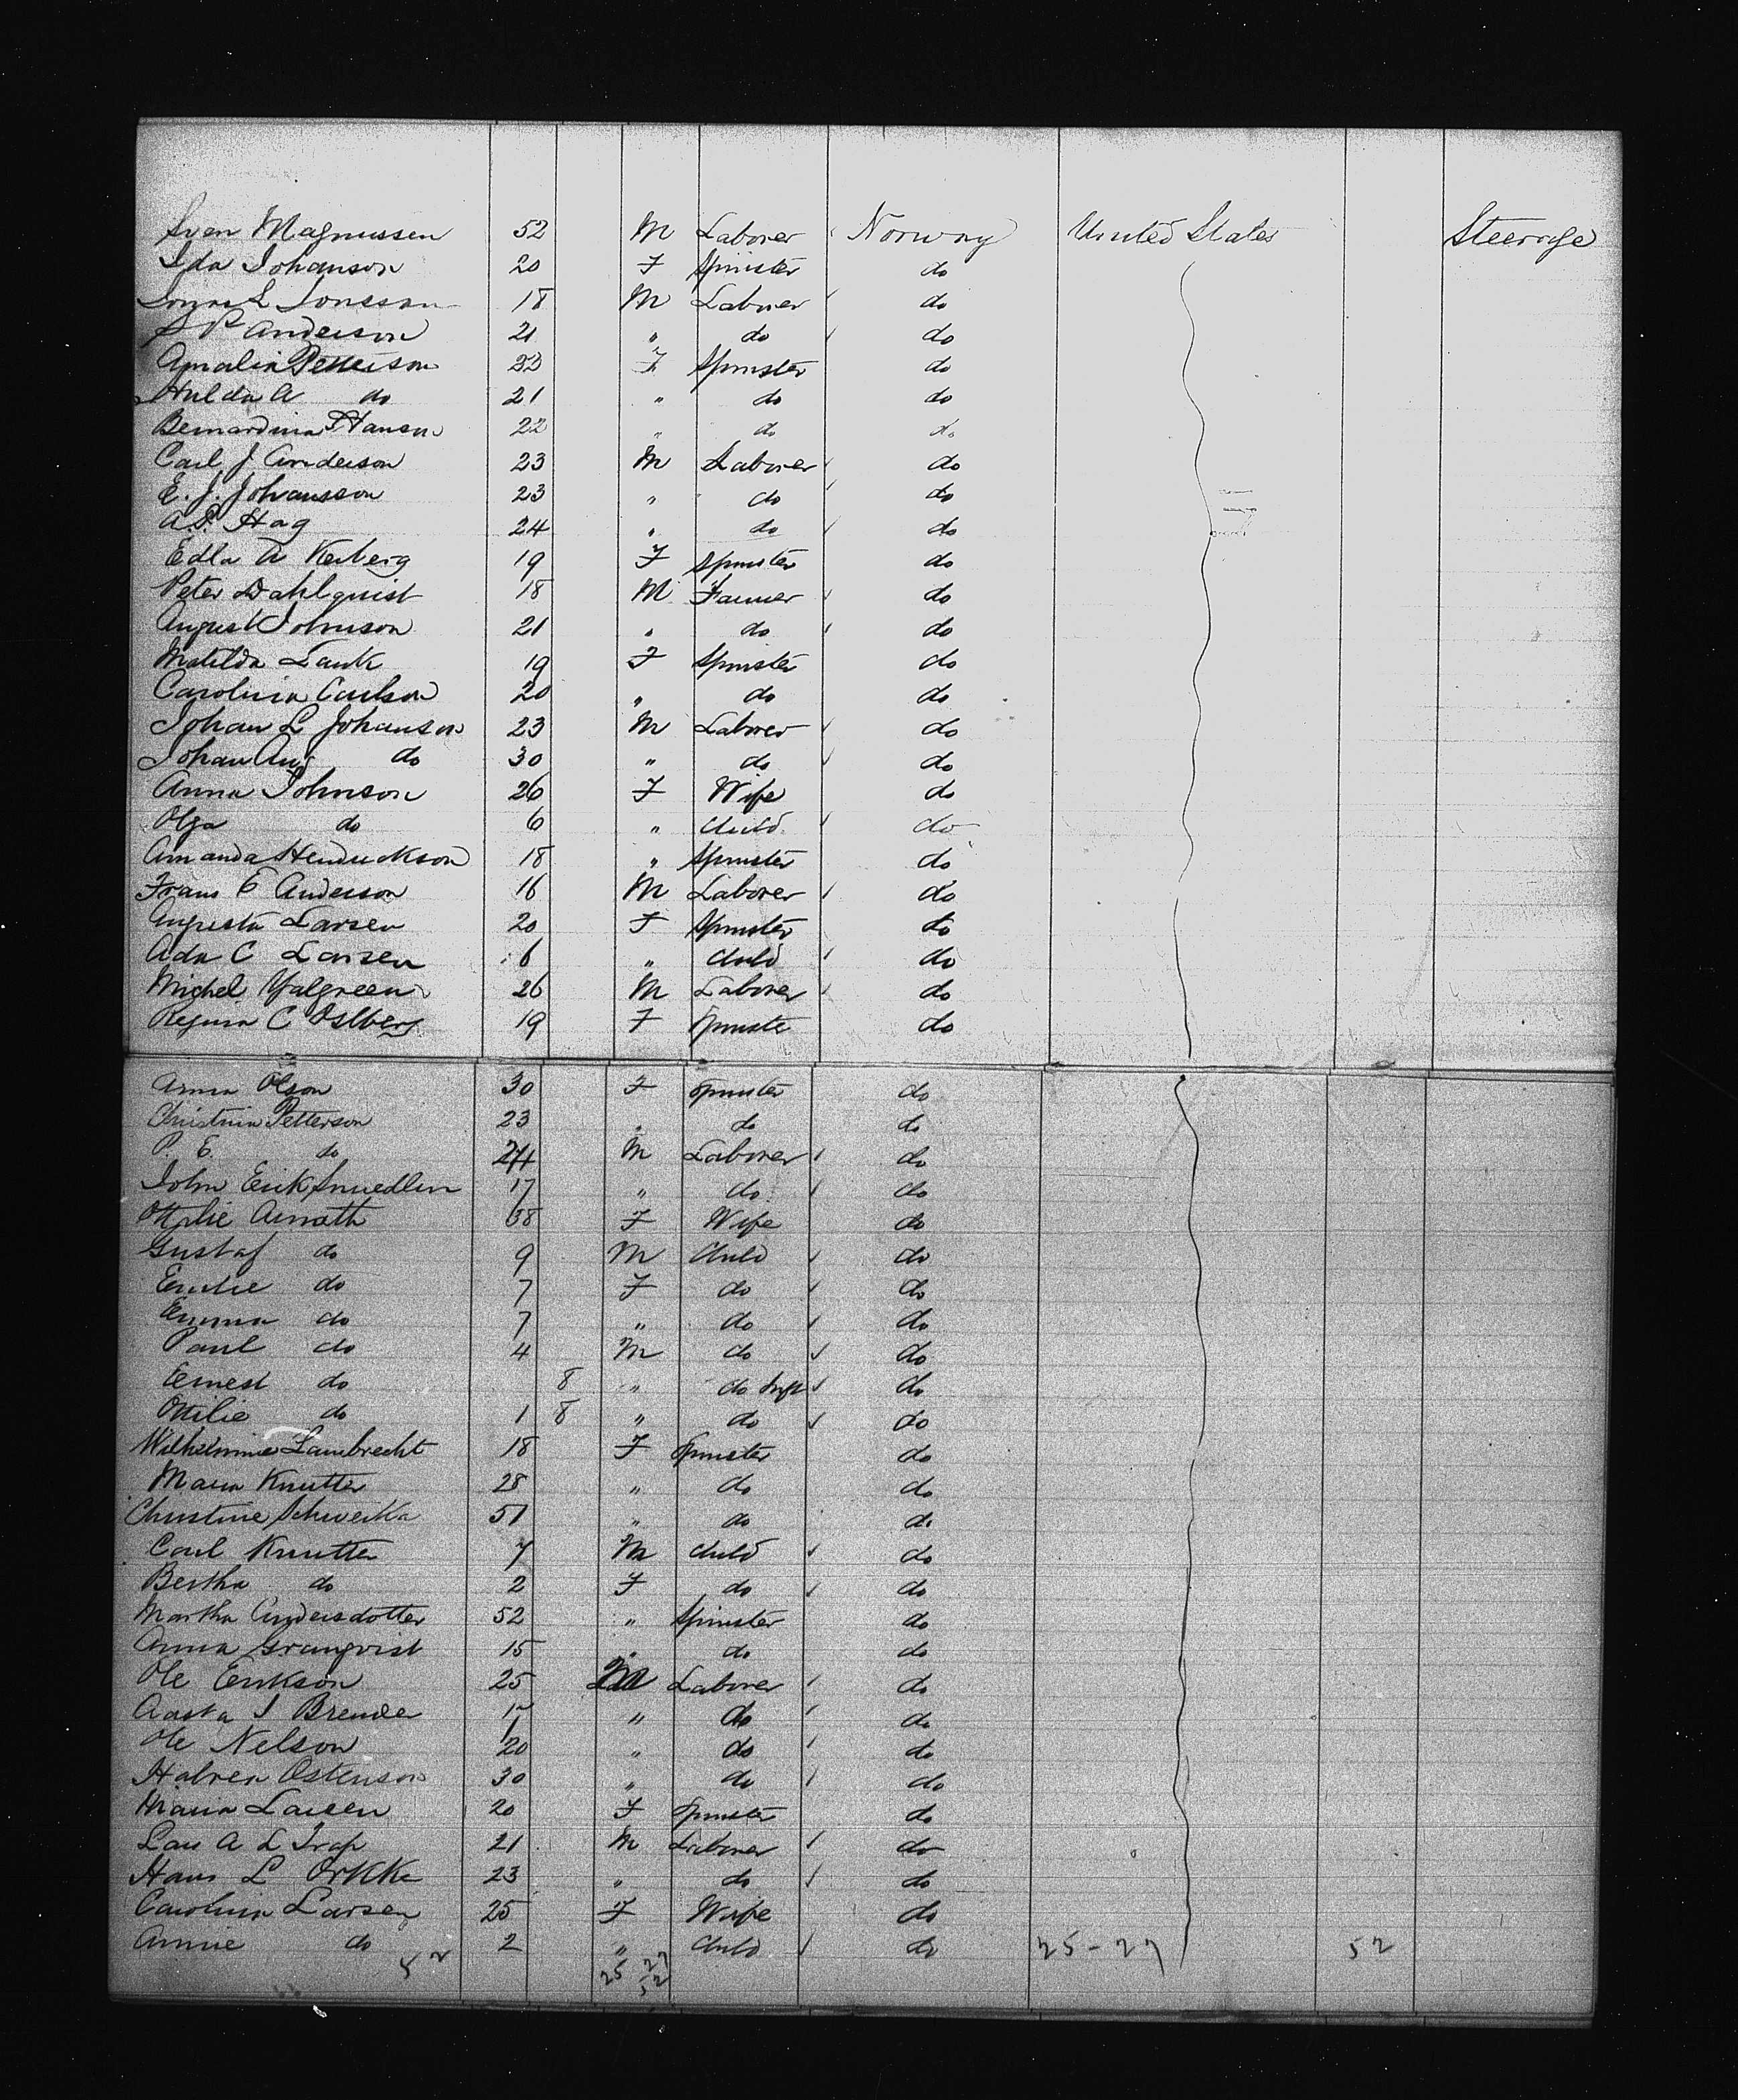 Sven Magnussen 52 M Laborer Norway United States Steerage
Ida Johanson 20 F Spinster do
Jonas L Jonsson 18 M Laborer do
S P Anderson 21 " do do
Amalia Petterson 22 F Spinster do
Hulda A do 21 " do do
Bernardina Hanson 22 " do do
Carl J Anderson 23 M Laborer do
E. J. Johansson 23 " do do
A. P. Hag 24 " do do
Edla A Kerberg 19 F Spinster do
Peter Dahlquist 18 M Farmer do
August Johnson 21 " do do
Matilda Lauk 19 F Spinster do
Carolina Carlson 20 " do do
Johan L Johanson 23 M Laborer do
Johan Aug do 30 " do do
Anna Johnson 26 F Wife do
Olga do 6 " Child do
Amanda Hendrickson 18 " Spinster do
Frans E Anderson 16 M Laborer do
Augusta Larsen 20 F Spinster do
Ada C Larsen 6 " Child do
Michel Yalgreen 26 M Laborer do
Regina C Oslberg 19 F Spinste do
Anna Olson 30 F Spinster do
Christina Petterson 23 " do do
P. E. do 24 M Laborer do
John Erik 17 " do do
Ottilie Arnath 38 F Wife do
Gustaf do 9 M Child do
Emilie do 7 F do do
Emma do 7 " do do
Paul do 4 M do do
Ernest do 8 " do Inft do
Ottilie do 1 8 " do do
Wilhelmine Lambrecht 18 F Spinster do
Maria Knutter 28 " do do
Christine Schweika 51 " do do
Carl Knutter 7 M Child do
Bertha do 2 F do do
Martha Andersdotter 52 " Spinster do
Anna Granqvist 15 " do do
Ole Erikson 25 M Laborer do
Aasta I Brender " do do
Ole Nelson 20 " do do
Halvren Ostenson 30 " do do
Maria Larsen 20 F Spinster do
Lars A L Trap 21 M Laborer do
Hans L Orkke 23 " do do
Carolina Larsen 25 F Wife do
Annie do 2 " Child do 25-27 52
52 25 27
52